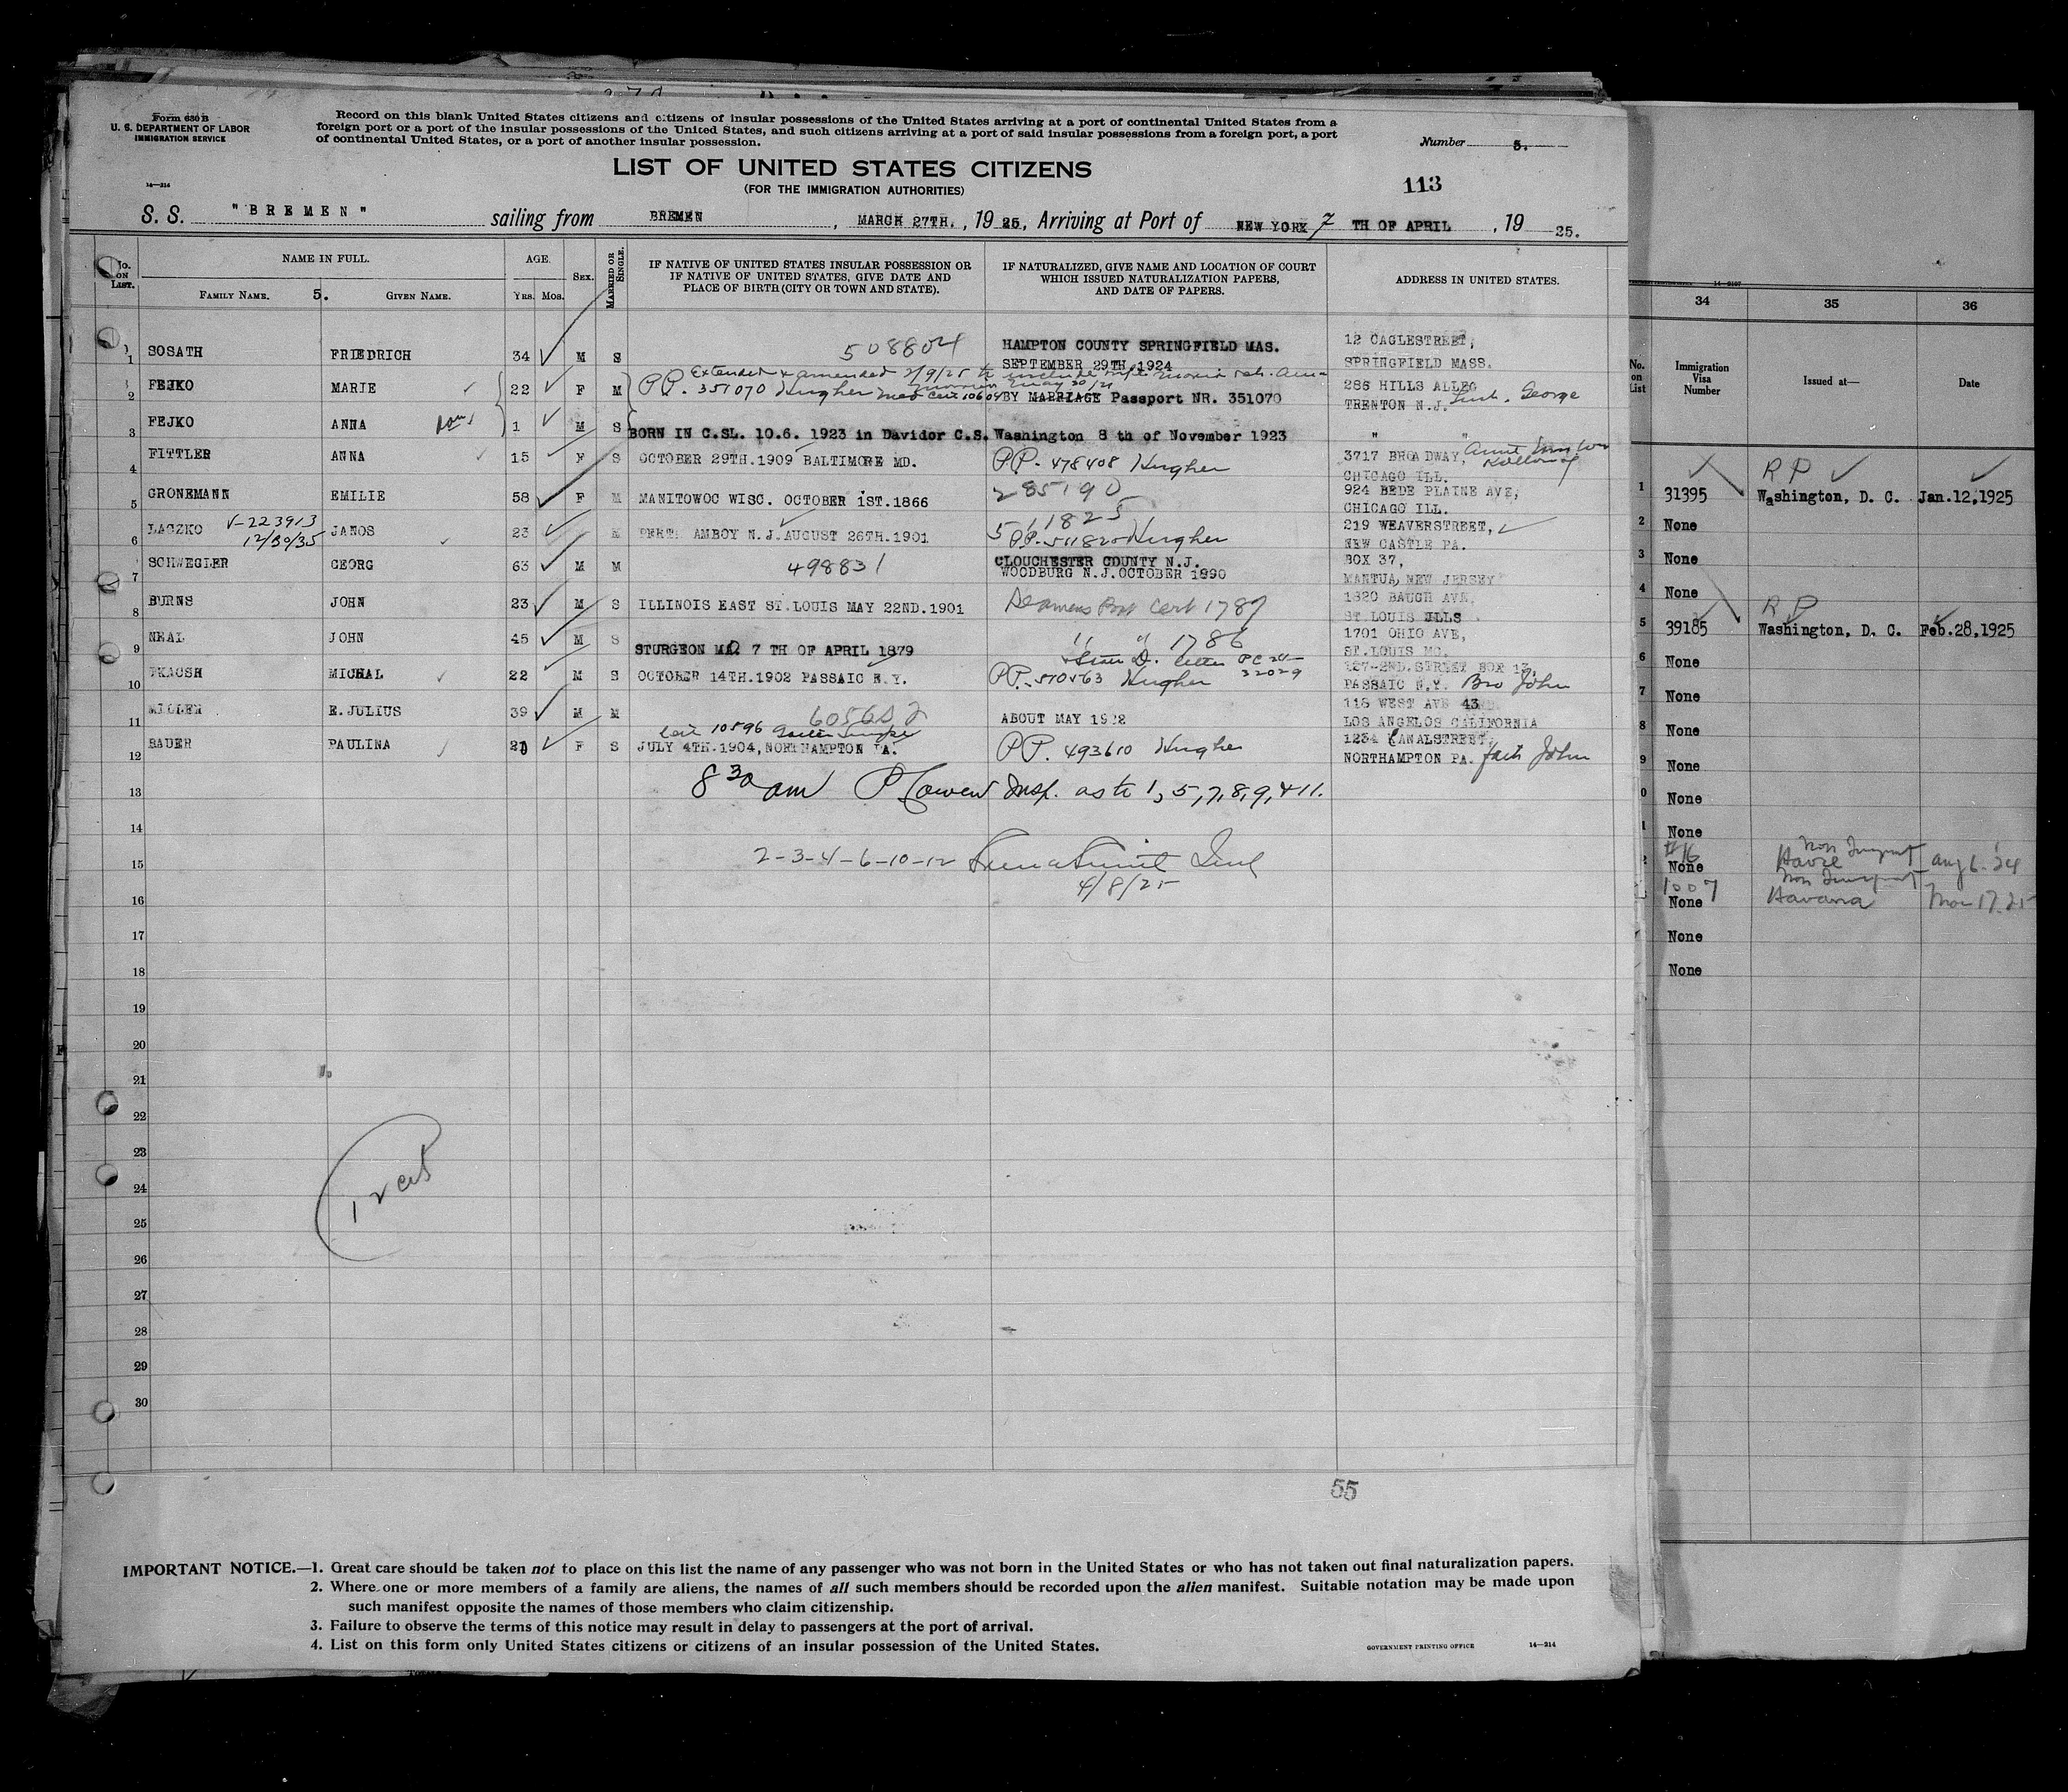 Form 630 B
U. S. DEPARTMENT OF LABOR
IMMIGRATION SERVICE
Record on this blank United States citizens and citizens of insular possessions of the United States arriving at a port of continental United States from a
foreign port or a port of the insular possessions of the United States, and such citizens arriving at a port of said insular possessions from a foreign port, a port
of continental United States, or a port of another insular possession.
Number 5.
LIST OF UNITED STATES CITIZENS
(FOR THE IMMIGRATION AUTHORITIES)
113
14—214
S. S. "BREMEN" sailing from BREMEN, MARCH 27TH., 19 25, Arriving at Port of NEW YORK 7 TH OF APRIL, 19 25.
No. on List. NAME IN FULL. AGE. Sex. Married or Single. IF NATIVE OF UNITED STATES INSULAR POSSESSION OR IF NATIVE OF UNITED STATES, GIVE DATE AND PLACE OF BIRTH (CITY OR TOWN AND STATE). IF NATURALIZED, GIVE NAME AND LOCATION OF COURT WHICH ISSUED NATURALIZATION PAPERS, AND DATE OF PAPERS. ADDRESS IN UNITED STATES.
Family Name. 5. Given Name. Yrs. Mos.
1 SOSATH FRIEDRICH 34 M S 508804 HAMPTON COUNTY SPRINGFIELD MAS. SEPTEMBER 29TH.1924 12 CAGLESTREET, SPRINGFIELD MASS.
Extended & amended 2/9/25 to include wife
2 FEJKO MARIE 22 F M PP. 351070 Hughes BY MARRIAGE Passport NR. 351070 286 HILLS ALLEG TRENTON N.J. George
3 FEJKO ANNA 1 M S BORN IN C.SL. 10.6. 1923 in Davidor C.S. Washington 8 th of November 1923 " "
4 FITTLER ANNA 15 F S OCTOBER 29TH.1909 BALTIMORE MD. PP. 478408 Hughes 3717 BROADWAY, CHICAGO ILL. Aunt
5 GRONEMANN EMILIE 58 F M MANITOWOC WISC. OCTOBER 1ST.1866 285190 924 BEDE PLAINE AVE, CHICAGO ILL.
6 LASZKO V-223913 12/30/35 JANOS 23 M PERTH AMBOY N.J. AUGUST 26TH.1901 511825 PP. 511825 Hughes 219 WEAVERSTREET, NEW CASTLE PA.
7 SCHWEGLER GEORG 63 M M 498831 CLOUCHESTER COUNTY N.J. WOODBURG N.J. OCTOBER 1890 BOX 37, MANTUA, NEW JERSEY
8 BURNS JOHN 23 M S ILLINOIS EAST ST.LOUIS MAY 22ND.1901 Seamens Prot Cert 1787 1820 BAUGH AVE, ST LOUIS ILLS
9 NEAL JOHN 45 M S STURGEON MO 7 TH OF APRIL 1879 " " 1786 1701 OHIO AVE, ST.LOUIS MO.
10 TKACSH MICHAL 22 M S OCTOBER 14TH.1902 PASSAIC N.Y. PP. 510563 Hughes 32029 127-2ND.STREET BOX 13, PASSAIC N.Y. Bro John
11 MILLER E.JULIUS 39 M M ABOUT MAY 1912 118 WEST AVE 43 LOS ANGELOS CALIFORNIA
Cert 10596
12 BAUER PAULINA 20 F S JULY 4TH.1904, NORTHAMPTON PA. PP. 493610 Hughes 1234 CANALSTREET, NORTHAMPTON PA. fath John
13 8 30 am P Cowen Insp. as to 1, 5, 7, 8, 9, & 11.
14
15 2-3-4-6-10-12
4/8/25
16
17
18
19
20
21
22
23
24
25
26
27
28
29
30
12 cit
55
IMPORTANT NOTICE.—1. Great care should be taken not to place on this list the name of any passenger who was not born in the United States or who has not taken out final naturalization papers.
2. Where one or more members of a family are aliens, the names of all such members should be recorded upon the alien manifest. Suitable notation may be made upon
such manifest opposite the names of those members who claim citizenship.
3. Failure to observe the terms of this notice may result in delay to passengers at the port of arrival.
4. List on this form only United States citizens or citizens of an insular possession of the United States.
GOVERNMENT PRINTING OFFICE 14—214
34 35 36
No. on List Immigration Visa Number Issued at— Date
R P
1 31395 Washington, D. C. Jan.12,1925
2 None
3 None
4 None
R P
5 39185 Washington, D. C. Feb.28,1925
6 None
7 None
8 None
9 None
0 None
1 None
#16 Non Immgrnt
2 None Havre Aug 6. 24
1007 Non Immgrnt
None Havana Mar 17.25
None
None